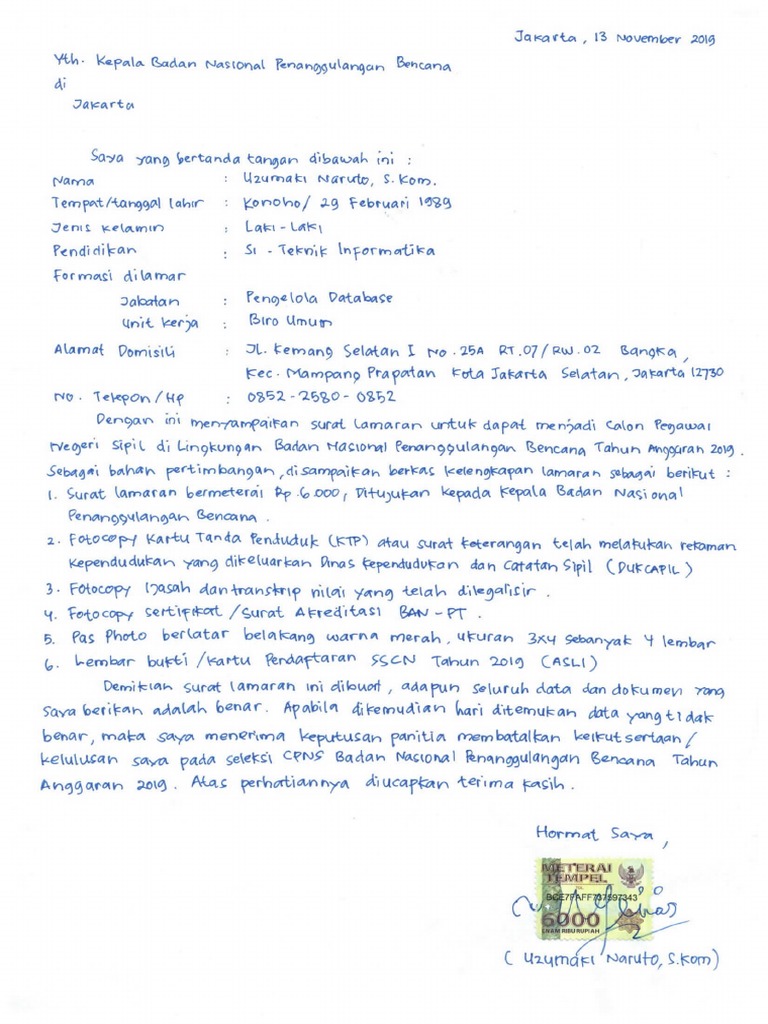 Jakarta, 13 November 2019
Yth. Kepala Badan Nasional Penanggulangan Bencana
di
Jakarta
Saya yang bertanda tangan dibawah ini :
Nama : Uzumaki Naruto, S.Kom.
Tempat/tanggal lahir : Konoho/ 29 Februari 1989
Jenis kelamin : Laki-Laki
Pendidikan : S1 - Teknik Informatika
Formasi dilamar
Jabatan : Pengelola Database
Unit kerja : Biro Umum
Alamat Domisili : JL. Kemang Selatan I No. 25A RT.07/RW.02 Bangka,
Kec. Mampang Prapatan Kota Jakarta Selatan, Jakarta 12730
No. Telepon/Hp : 0852-2580-0852
Dengan ini menyampaikan surat lamaran untuk dapat menjadi Calon Pegawai
Negeri Sipil di Lingkungan Badan Nasional Penanggulangan Bencana Tahun Anggaran 2019.
Sebagai bahan pertimbangan, disampaikan berkas kelengkapan lamaran sebagai berikut :
1. Surat lamaran bermeterai Rp. 6.000, Ditujukan kepada Kepala Badan Nasional
Penanggulangan Bencana.
2. Fotocopy Kartu Tanda Penduduk (KTP) atau surat keterangan telah melakukan rekaman
kependudukan yang dikeluarkan Dinas Kependudukan dan Catatan Sipil (DUKCAPIL)
3. Fotocopy Ijasah dan transkrip nilai yang telah dilegalisir.
4. Fotocopy sertifikat/Surat Akreditasi BAN-PT.
5. Pas Photo berlatar belakang warna merah, ukuran 3x4 sebanyak 4 lembar
6. Lembar bukti/Kartu Pendaftaran SSCN Tahun 2019 (ASLI)
Demikian surat lamaran ini dibuat, adapun seluruh data dan dokumen yang
saya berikan adalah benar. Apabila dikemudian hari ditemukan data yang tidak
benar, maka saya menerima keputusan panitia membatalkan keikutsertaan/
kelulusan saya pada seleksi CPNS Badan Nasional Penanggulangan Bencana Tahun
Anggaran 2019. Atas perhatiannya diucapkan terima kasih.
Hormat Saya,
METERAI
TEMPEL
6000
ENAM RIBU RUPIAH
(Uzumaki Naruto, S.Kom)